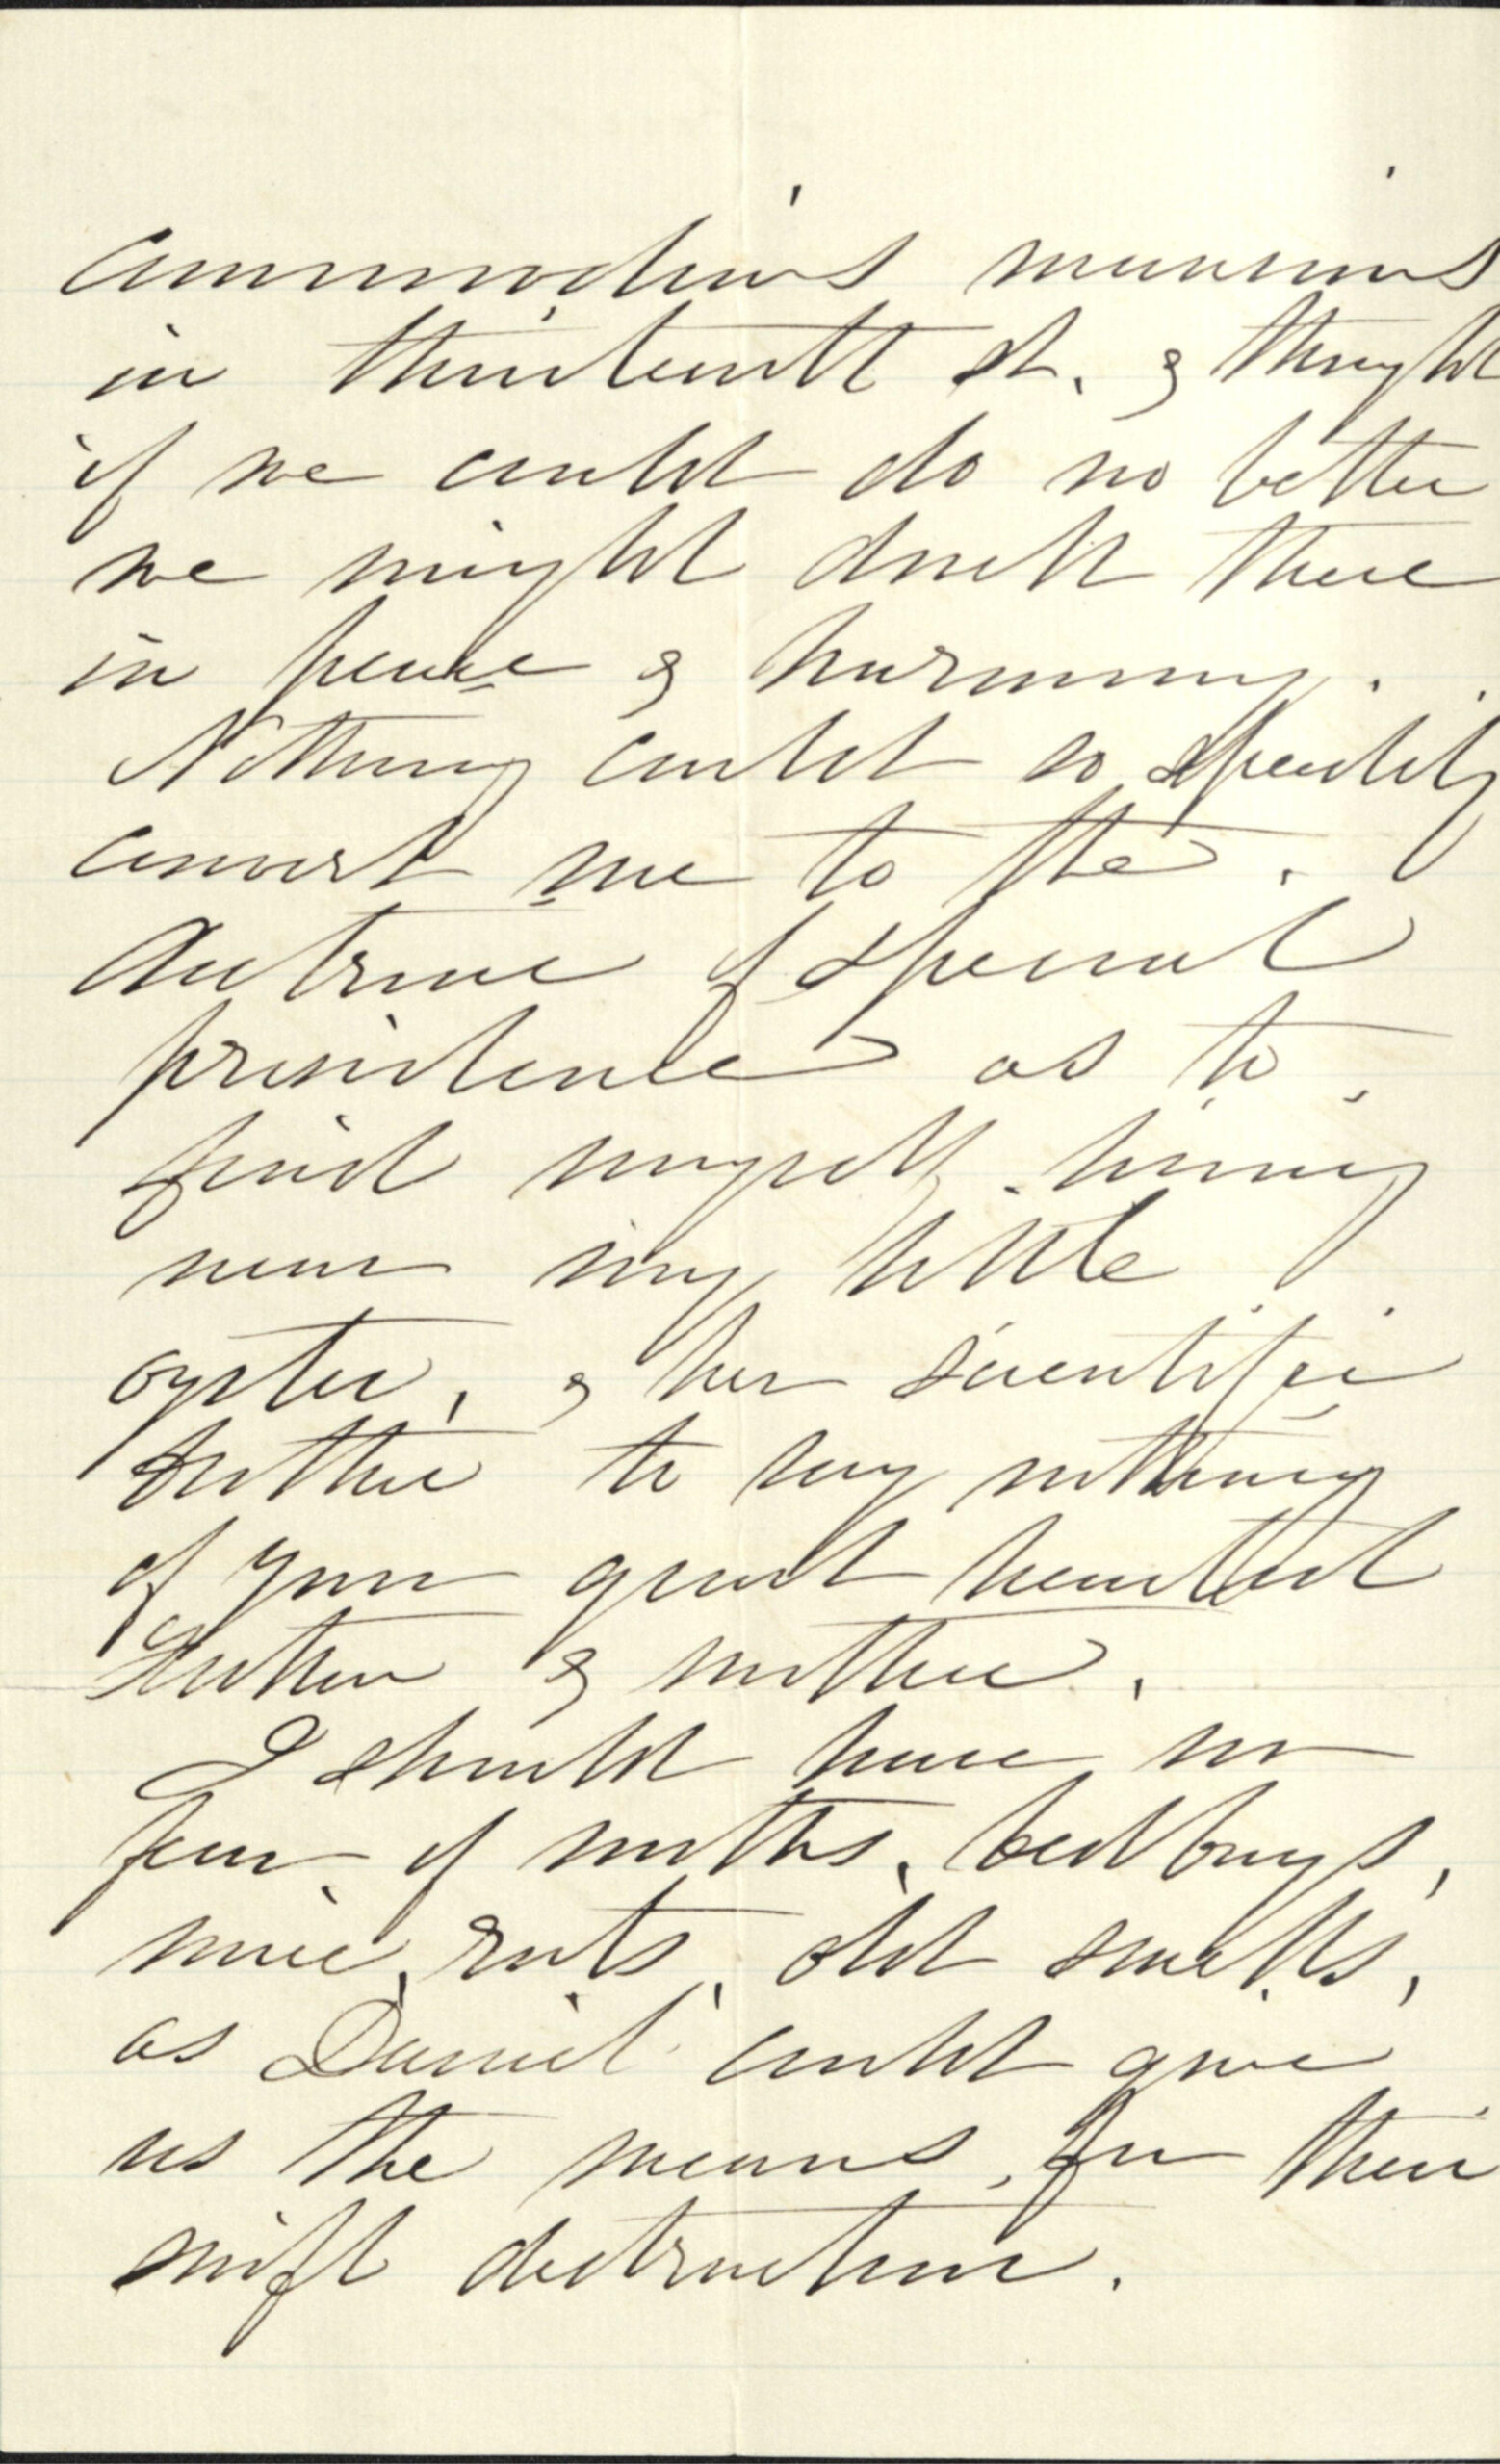 commodious mansions
in thirteenth st. & thought
if we could do no better
we might dwell there
in peace & harmony.
Nothing could so speedily
convert me to the
doctrine of special
providence as to
find myself living
near my little
oyster, & her scientific
brother to say nothing
of your great hearted
Father & mother.
I should have no
fear of moths, bed bugs,
mice, rats, old smells,
as Daniel could give
us the means for their
swift destruction.